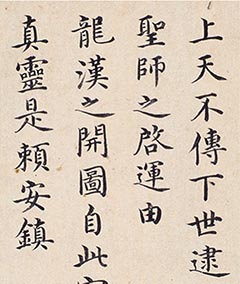 上天不傳下世逮
聖師之啓運由
龍漢之開圖自此
真靈是賴安鎮